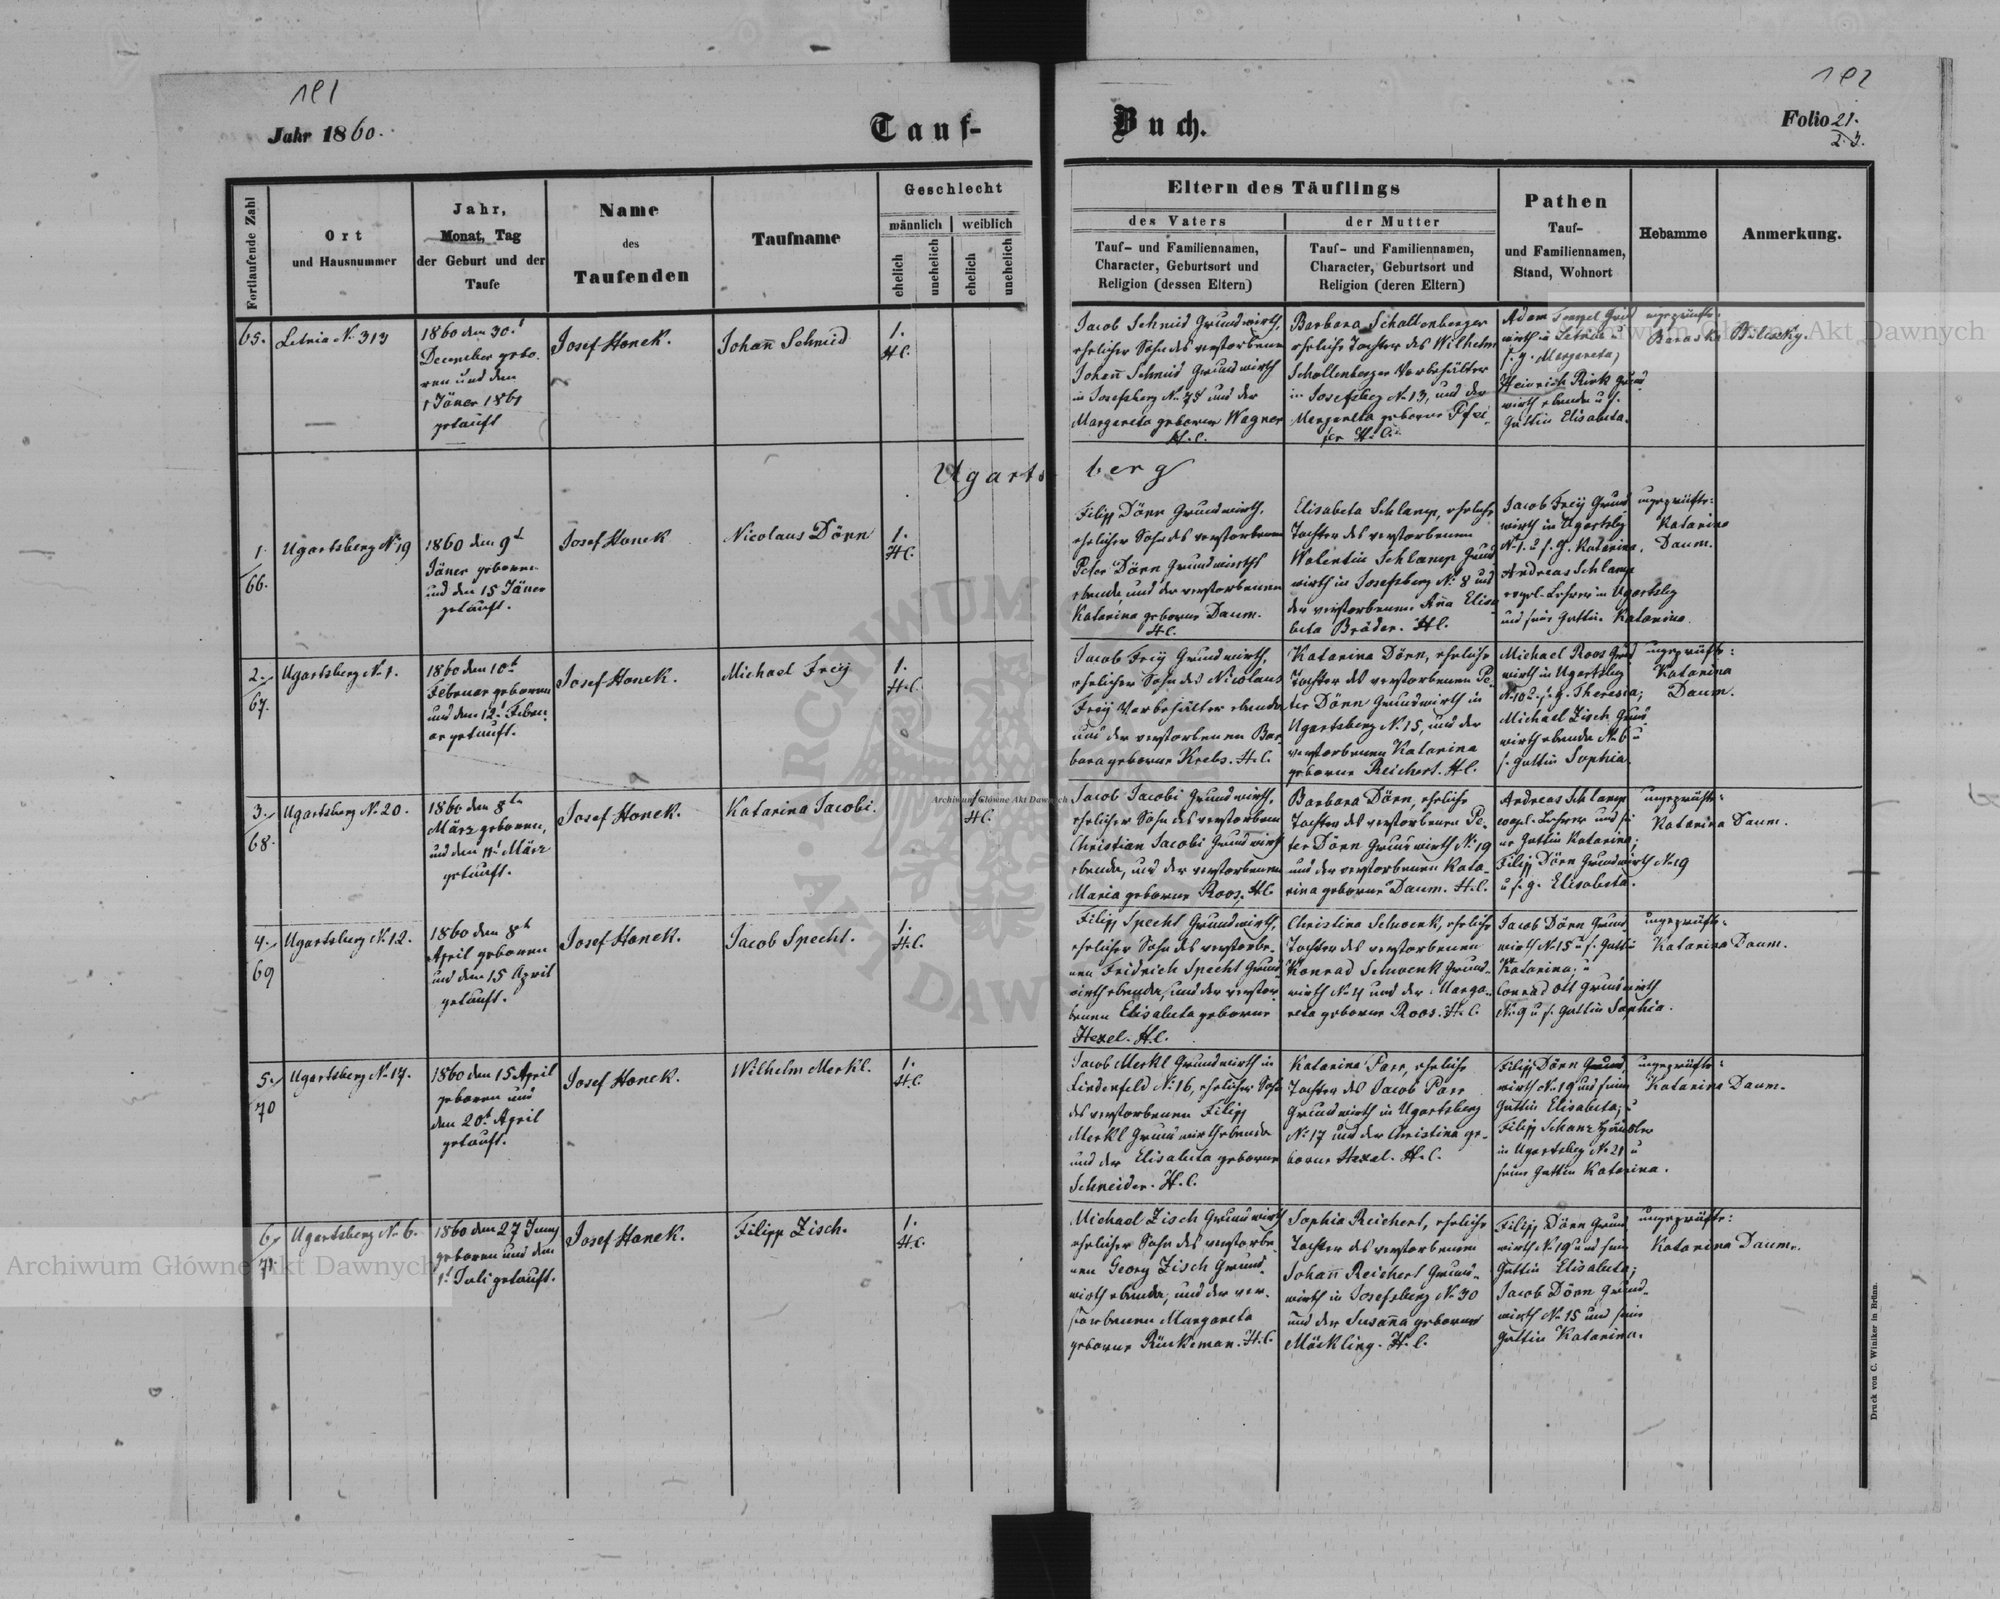 191
192
Jahr 1860.
Tauf-
Buch.
Folio 21.
2.3.
Fortlaufende Zahl
Ort
und Hausnummer
Jahr,
Monat, Tag
der Geburt und der
Taufe
Name
des
Taufenden
Taufname
Geschlecht
männlich
weiblich
ehelich
unehelich
ehelich
unehelich
Eltern des Täuflings
des Vaters
Tauf- und Familiennamen,
Character, Geburtsort und
Religion (dessen Eltern)
der Mutter
Tauf- und Familiennamen,
Character, Geburtsort und
Religion (deren Eltern)
Pathen
Tauf-
und Familiennamen,
Stand, Wohnort
Hebamme
Anmerkung.
65.
Letnia N. 313
1860 den 30.t
December gebo-
ren und den
1 Jäner 1861
getauft
Josef Honek.
Johan̄ Schmid
1.
H.C.
Jacob Schmid Grundwirth,
ehelicher Sohn des verstorbenen
Johan̄ Schmid Grundwirth
in Josefsberg N. 78 und der
Margareta geborene Wagner
H.C.
Barbara Schallenberger
eheliche Tochter des Wilhelm
Schallenberger Vorbehälter
in Josefsberg N. 13, und der
Margareta geborne
H.C.
Adam
wirth in Letnia u
s. g. Margareta;
Heinrich Rink Grund
wirth ebenda u s.
Gattin Elisabeta.
ungeprüfte:
Baraska Bilecky.
Ugarts-
berg
1.
66.
Ugartsberg N. 19
1860 den 9t
Jäner geboren
und den 15 Jäner
getauft.
Josef Honek
Nicolaus Dörn
1.
H.C.
Filipp Dörn Grundwirth,
ehelicher Sohn des verstorbenen
Peter Dörn Grundwirth
ebenda und der verstorbenen
Katarina geborne Daum.
H.C.
Elisabeta Schlamp, eheliche
Tochter des verstorbenen
Walentin Schlamp Grund
wirth in Josefsberg N. 8 und
der verstorbenen An̄a Elisa
beta Bräder. H.C.
Jacob Freÿ Grund
wirth in Ugartsbg
N. 1. u s. g. Katarina,
Andreas Schlamp
evgel. Lehrer in Ugartsbg
und seine Gattin Katarina.
ungeprüfte:
Katarina
Daum.
2.
67.
Ugartsberg N. 1.
1860 den 10t
Februar geboren
und den 12t Febru-
ar getauft.
Josef Honek.
Michael Freÿ
1.
H.C.
Jacob Freÿ Grundwirth,
ehelicher Sohn des Nicolaus
Freÿ Vorbehälter ebenda
und der verstorbenen Bar-
bara geborne Krebs. H.C.
Katarina Dörn, eheliche
Tochter des verstorbenen Pe-
ter Dörn Grundwirth in
Ugartsberg N. 15, und der
verstorbenen Katarina
geborne Reichert. H.C.
Michael Roos Grund
wirth in Ugartsbg
N. 10 u. s. g. Theresia;
Michael Zisch Grund
wirth ebenda N. 6 u
s. Gattin Sophia.
ungeprüfte:
Katarina
Daum.
3.
68.
Ugartsberg N. 20.
1860 den 8tn
März geboren,
und den 11t März
getauft.
Josef Honek.
Katarina Jacobi.
1.
H.C.
Jacob Jacobi Grundwirth,
ehelicher Sohn des verstorbenen
Christian Jacobi Grundwirth
ebenda, und der verstorbenen
Maria geborne Roos. H.C.
Barbara Dörn, eheliche
Tochter des verstorbenen Pe-
ter Dörn Grundwirth N. 19
und der verstorbenen Kata-
rina geborne Daum. H.C.
Andreas Schlamp
evgel. Lehrer und sei
ne Gattin Katarina;
Filipp Dörn Grundwirth N. 19
u s. g. Elisabeta.
ungeprüfte:
Katarina Daum.
4.
69
Ugartsberg N. 12.
1860 den 8t
April geboren
und den 15 April
getauft.
Josef Honek.
Jacob Specht.
1.
H.C.
Filipp Specht Grundwirth,
ehelicher Sohn des verstorbe-
nen Fridrich Specht Grund-
wirth ebenda, und der verstor-
benen Elisabeta geborne
Hexel. H.C.
Christina Schwenk, eheliche
Tochter des verstorbenen
Konrad Schwenk Grund-
wirth N. 4 und der Marga-
reta geborne Roos. H.C.
Jacob Dörn Grund
wirth N. 15 u s. Gattin
Katarina; u
Conrad Ott Grundwirth
N. 9 u s. Gattin Sophia.
ungeprüfte:
Katarina Daum.
5.
70
Ugartsberg N. 17.
1860 den 15 April
geboren und
den 20t April
getauft.
Josef Honek.
Wilhelm Merkl.
1.
H.C.
Jacob Merkl Grundwirth in
Lindenfeld N. 16, ehelicher Sohn
des verstorbenen Filipp
Merkl Grundwirth ebenda
und der Elisabeta geborne
Schneider. H.C.
Katarina Parr, eheliche
Tochter des Jacob Parr
Grundwirth in Ugartsberg
N. 17 und der Christina ge-
borne Hexel. H.C.
Filipp Dörn Grund
wirth N. 19 und seine
Gattin Elisabeta; u
Filipp Schanz Häusler
in Ugartsbg N. 21 u
seine Gattin Katarina.
ungeprüfte:
Katarina Daum.
6.
71.
Ugartsberg N. 6.
1860 den 27 Juny
geboren und den
1t Juli getauft.
Josef Honek.
Filipp Zisch.
1.
H.C.
Michael Zisch Grundwirth
ehelicher Sohn des verstorbe-
nen Georg Zisch Grund-
wirth ebenda, und der ver-
storbenen Margareta
geborne Rückeman. H.C.
Sophia Reichert, eheliche
Tochter des verstorbenen
Johan̄ Reichert Grund-
wirth in Josefsberg N. 30
und der Susan̄a geborne
Möckling. H.C.
Filipp Dörn Grund
wirth N. 19 und seine
Gattin Elisabeta;
Jacob Dörn Grund-
wirth N. 15 und seine
Gattin Katarina.
ungeprüfte:
Katarina Daum.
Druck von C. Winiker in Brünn.
Archiwum Główne Akt Dawnych
Archiwum Główne Akt Dawnych
Archiwum Główne Akt Dawnych